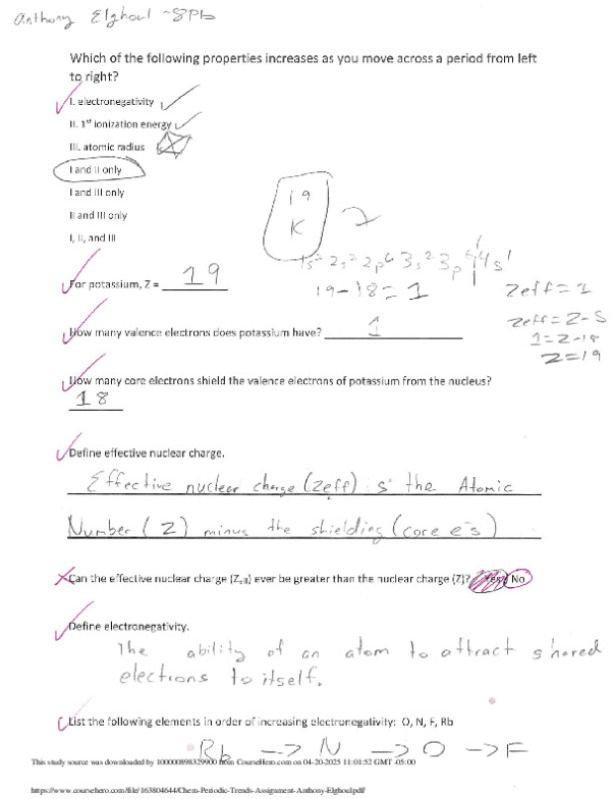 Anthony Elghoul ~8Pb
Which of the following properties increases as you move across a period from left
to right?
I. electronegativity
II. 1st ionization energy
III. atomic radius
I and II only
I and III only
II and III only
I, II, and III
19
K
1s² 2s² 2p⁶ 3s² 3p⁶ 4s¹
For potassium, Z = 19
19-18=1
Zeff=1
Zeff=Z-S
1=Z-18
Z=19
How many valence electrons does potassium have? 1
How many core electrons shield the valence electrons of potassium from the nucleus?
18
Define effective nuclear charge.
Effective nuclear charge (Zeff) is the Atomic
Number (Z) minus the shielding (core e-s)
Can the effective nuclear charge (Zeff) ever be greater than the nuclear charge (Z)? Yes/No
Define electronegativity.
The ability of an atom to attract shared
electrons to itself.
List the following elements in order of increasing electronegativity: O, N, F, Rb
Rb --> N --> O --> F
This study source was downloaded by 100000898329900 from CourseHero.com on 04-20-2025 11:01:52 GMT -05:00
https://www.coursehero.com/file/163804644/Chem-Periodic-Trends-Assignment-Anthony-Elghoulpdf/